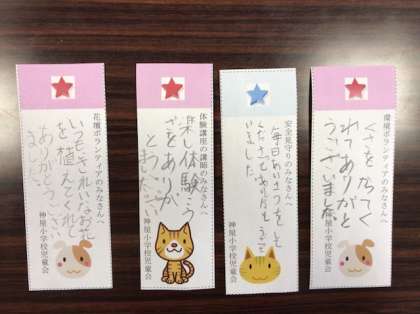 花壇ボランティアのみなさんへ
いつもきれいなお花
を植えてくれて
ありがとうござい
ました。
神屋小学校児童会
体験講座の講師のみなさんへ
楽し体験こう
ざをありが
神屋小学校児童会
安全見守りのみなさんへ
毎日あいさつをして
くださってありがとうござ
いました
神屋小学校児童会
環境ボランティアのみなさんへ
くさをかってく
れてありがと
うございました
神屋小学校児童会